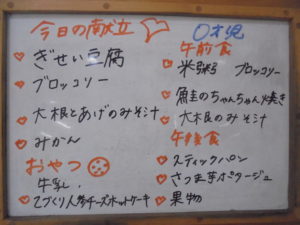 今日の献立
ぎせい豆腐
ブロッコリー
大根とあげのみそ汁
みかん
おやつ
牛乳
てづくり人参チーズホットケーキ
0才児
午前食
米粥 ブロッコリー
鮭のちゃんちゃん焼き
大根のみそ汁
午後食
スティックパン
さつま芋ポタージュ
果物